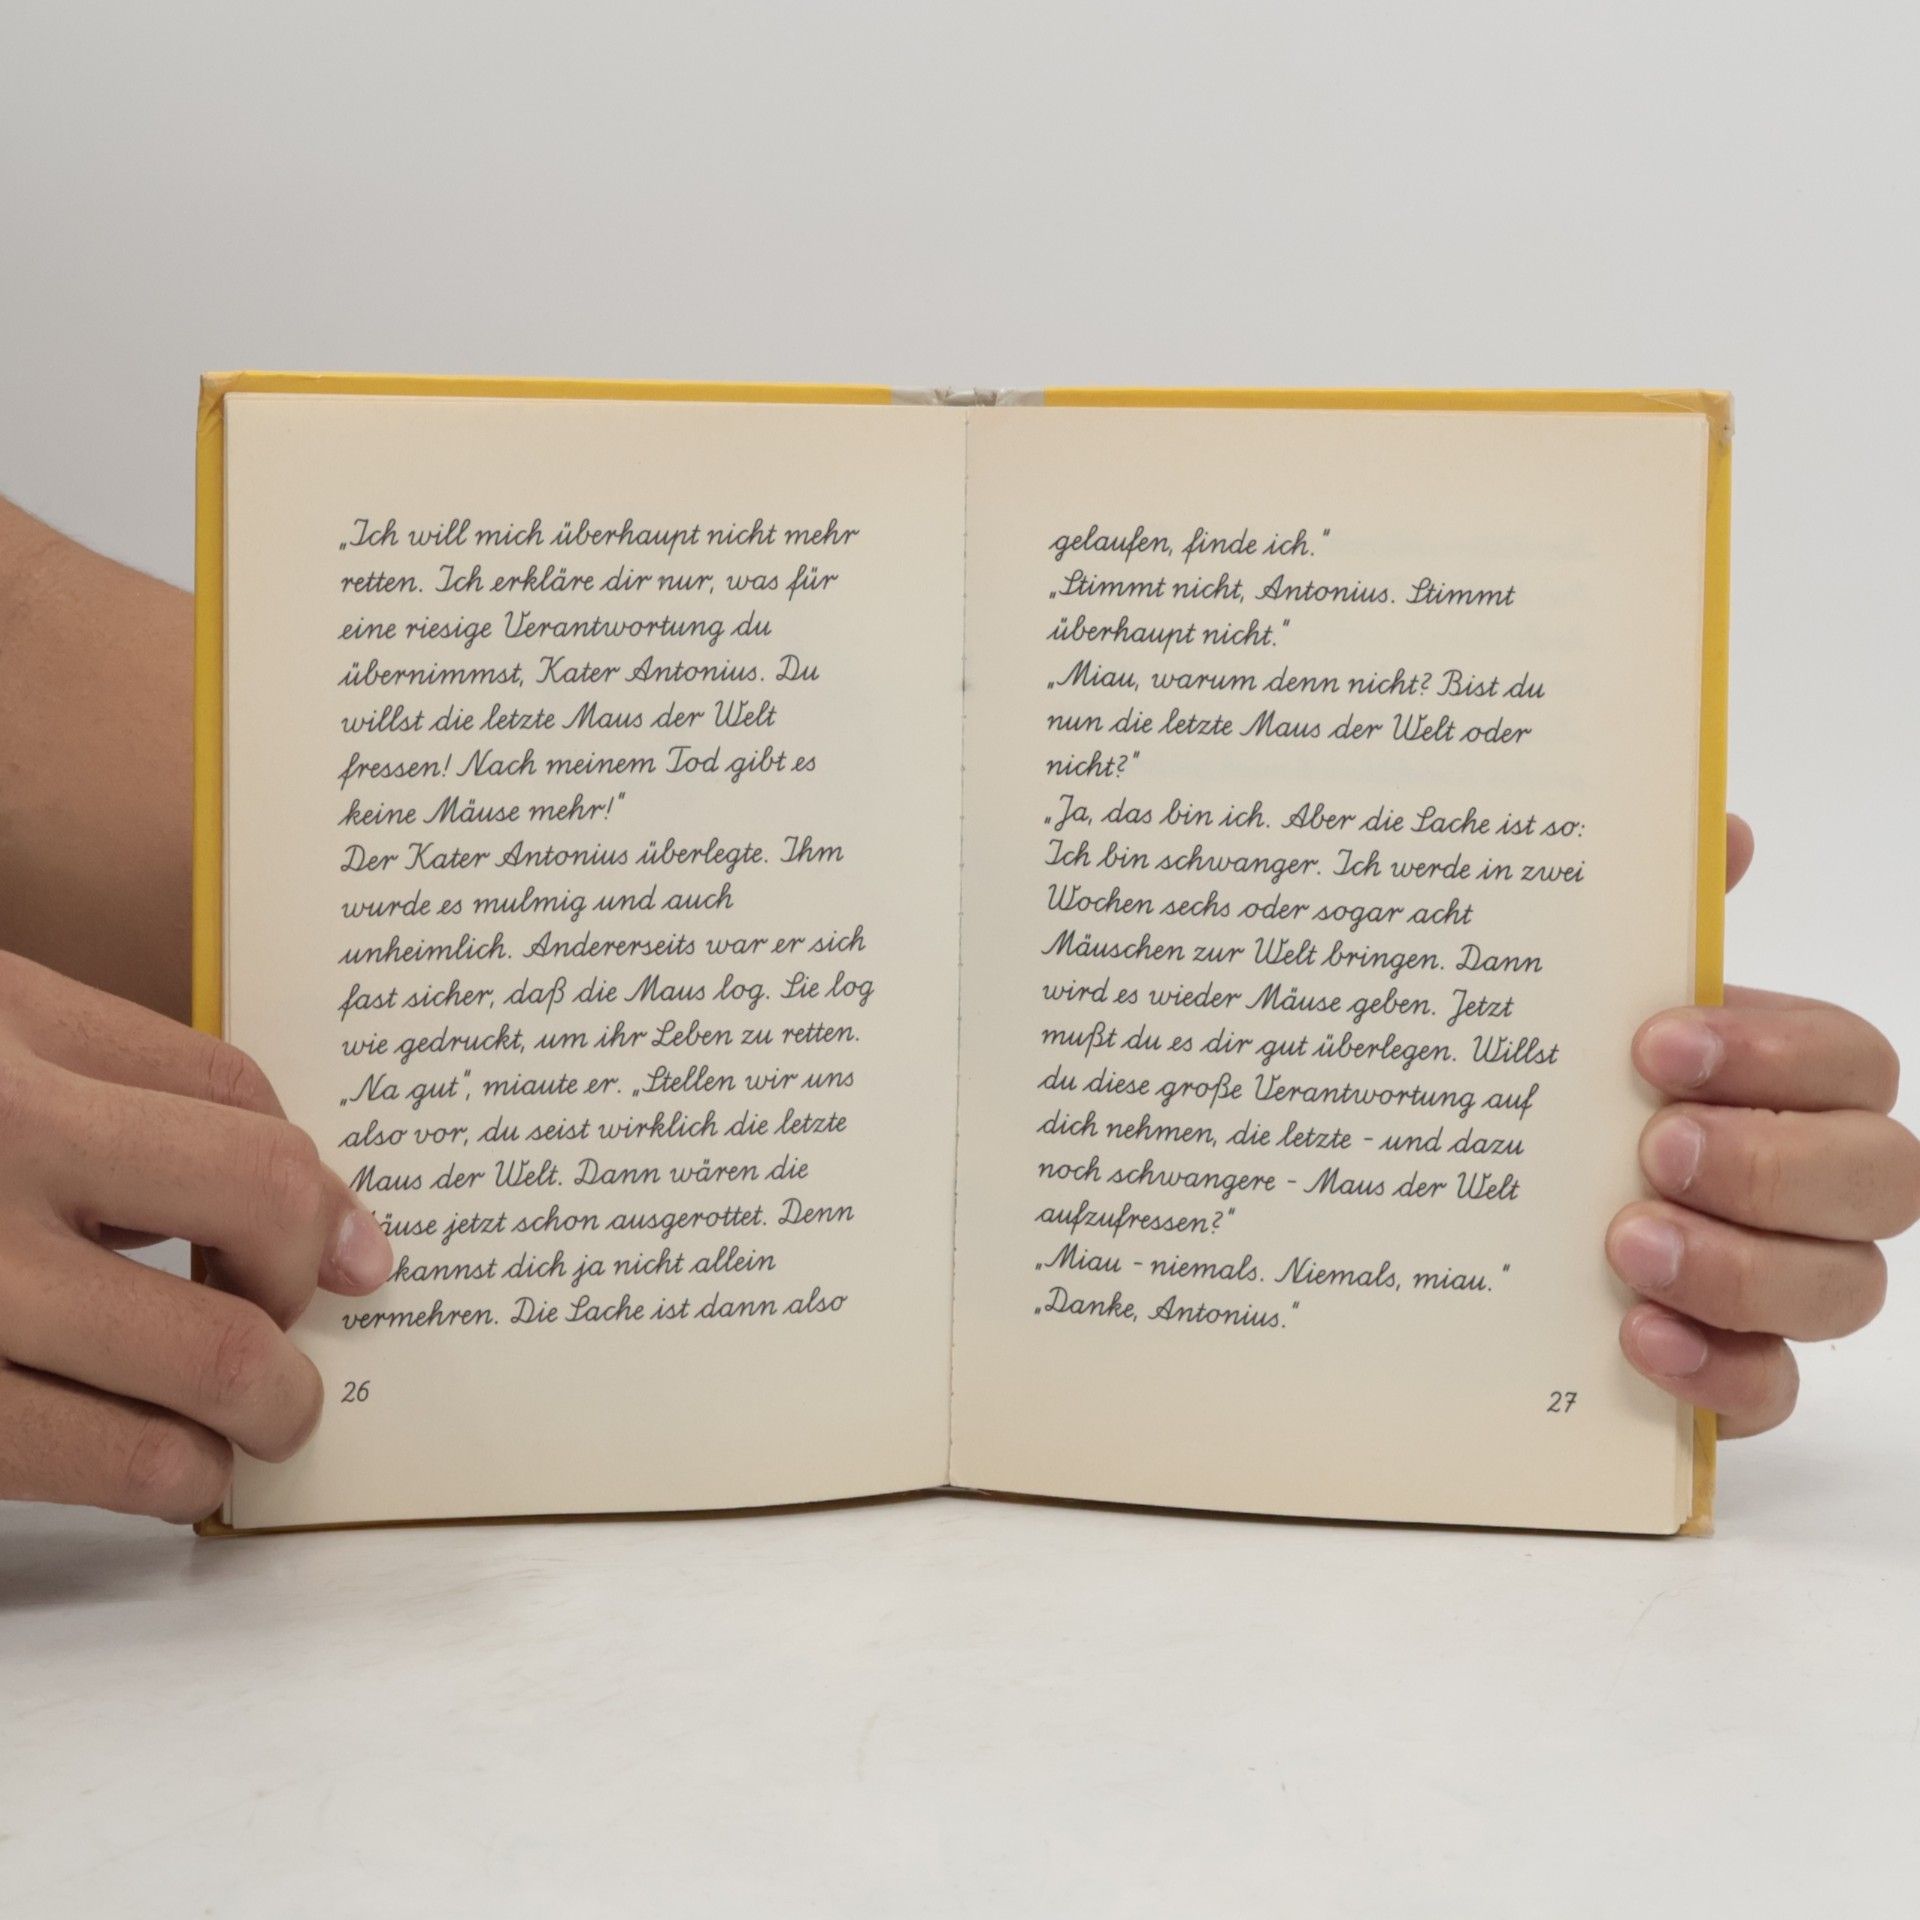 „Ich will mich überhaupt nicht mehr
retten. Ich erkläre dir nur, was für
eine riesige Verantwortung du
übernimmst, Kater Antonius. Du
willst die letzte Maus der Welt
fressen! Nach meinem Tod gibt es
keine Mäuse mehr!"
Der Kater Antonius überlegte. Ihm
wurde es mulmig und auch
unheimlich. Andererseits war er sich
fast sicher, daß die Maus log. Sie log
wie gedruckt, um ihr Leben zu retten.
„Na gut", miaute er. „Stellen wir uns
also vor, du seist wirklich die letzte
Maus der Welt. Dann wären die
äuse jetzt schon ausgerottet. Denn
kannst dich ja nicht allein
vermehren. Die Sache ist dann also
26
gelaufen, finde ich."
„Stimmt nicht, Antonius. Stimmt
überhaupt nicht."
„Miau, warum denn nicht? Bist du
nun die letzte Maus der Welt oder
nicht?"
„Ja, das bin ich. Aber die Sache ist so:
Ich bin schwanger. Ich werde in zwei
Wochen sechs oder sogar acht
Mäuschen zur Welt bringen. Dann
wird es wieder Mäuse geben. Jetzt
mußt du es dir gut überlegen. Willst
du diese große Verantwortung auf
dich nehmen, die letzte - und dazu
noch schwangere - Maus der Welt
aufzufressen?"
„Miau - niemals. Niemals, miau."
„Danke, Antonius."
27